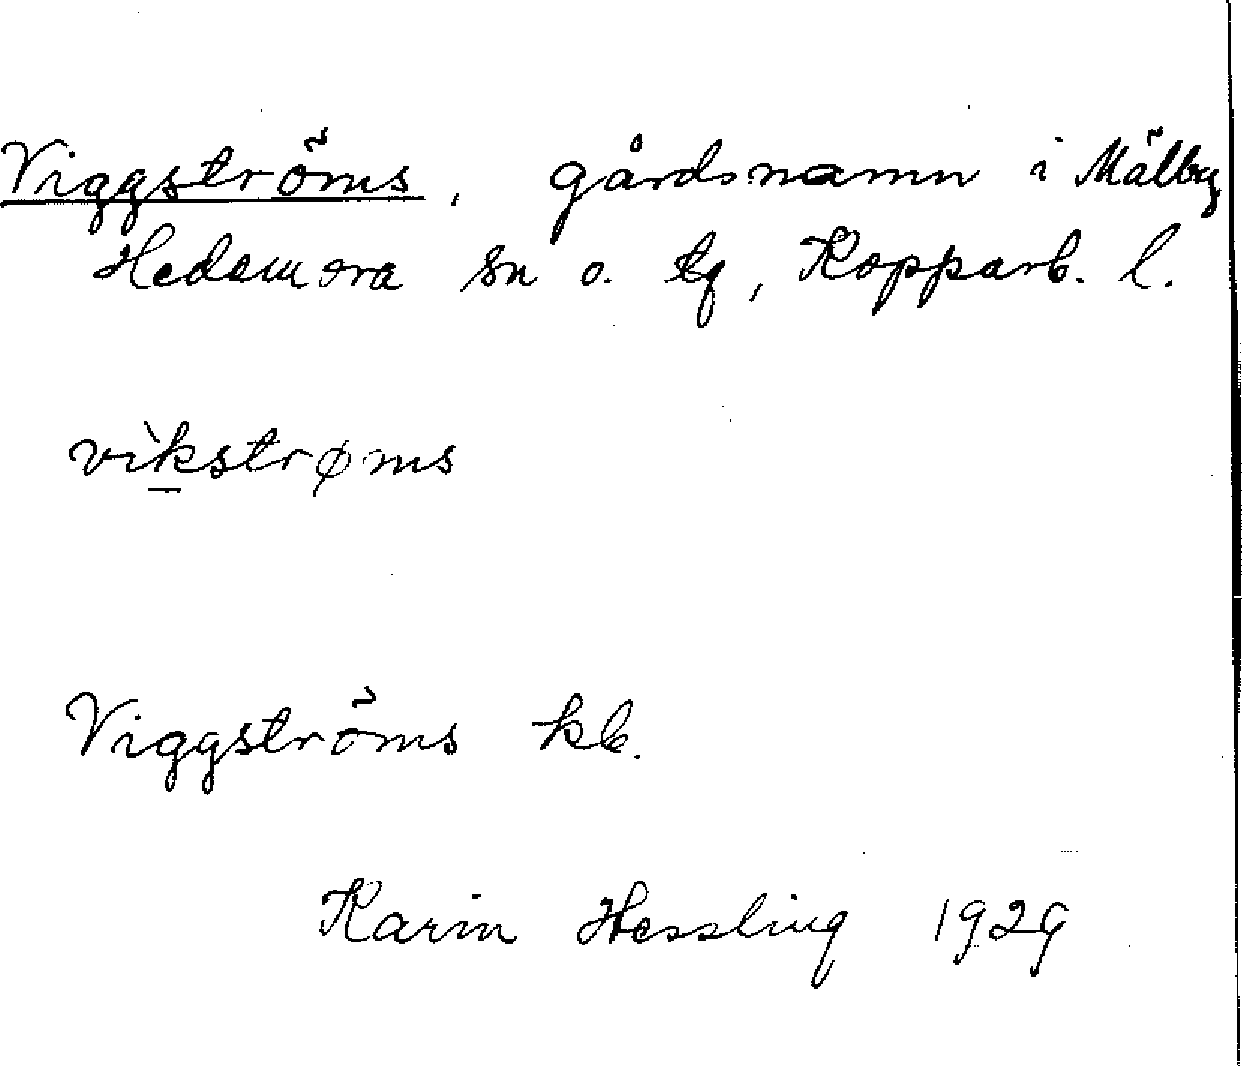 Viggströms, gårdsnamn i Mälby
Hedemora sn o. tg, Kopparb. l.
vìkstrøms
Viggströms kb.
Karin Hessling 1929